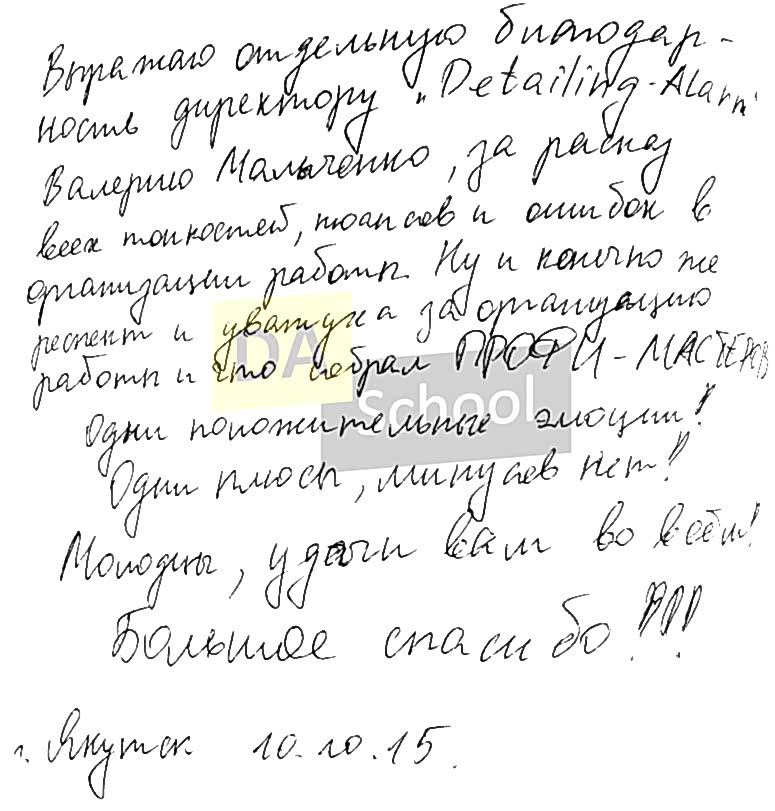 Выражаю отдельную благодар-
ность директору "Detailing-Alarm"
Валерию Мальченко, за рассказ
всех тонкостей, нюансов и ошибок в
организации работы. Ну и конечно же
респект и уважуха за организацию
работы и что собрал ПРОФИ-МАСТЕРОВ
Одни положительные эмоции!
Одни плюсы, минусов нет!!
Молодцы, удачи вам во всём!
Большое спасибо!!!
г. Якутск 10.10.15.
DA
School